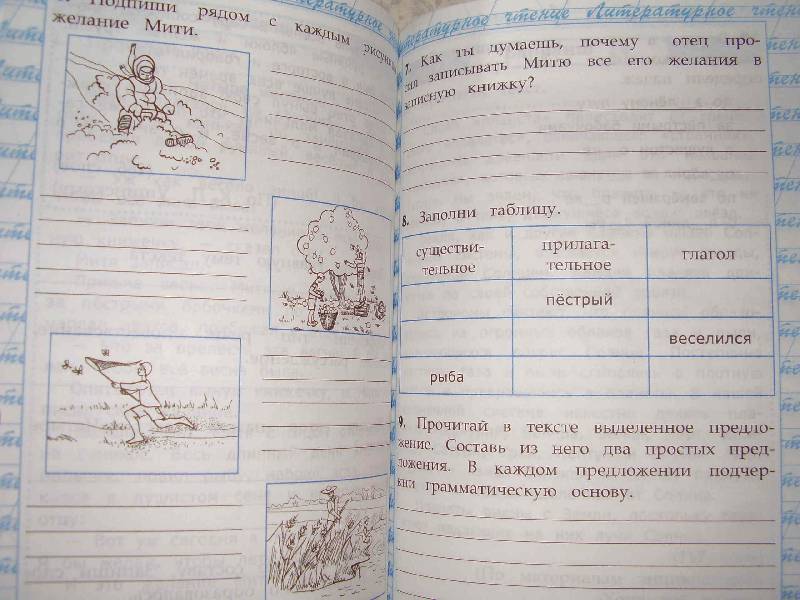 Литературное чтение Литературное чтение
Подпиши рядом с каждым
желание Мити.
7. Как ты думаешь, почему отец про-
сил записывать Митю все его желания в
записную книжку?
8. Заполни таблицу.
существи-
тельное
прилага-
тельное
глагол
пёстрый
веселился
рыба
9. Прочитай в тексте выделенное предло-
жение. Составь из него два простых пред-
ложения. В каждом предложении подчер-
кни грамматическую основу.